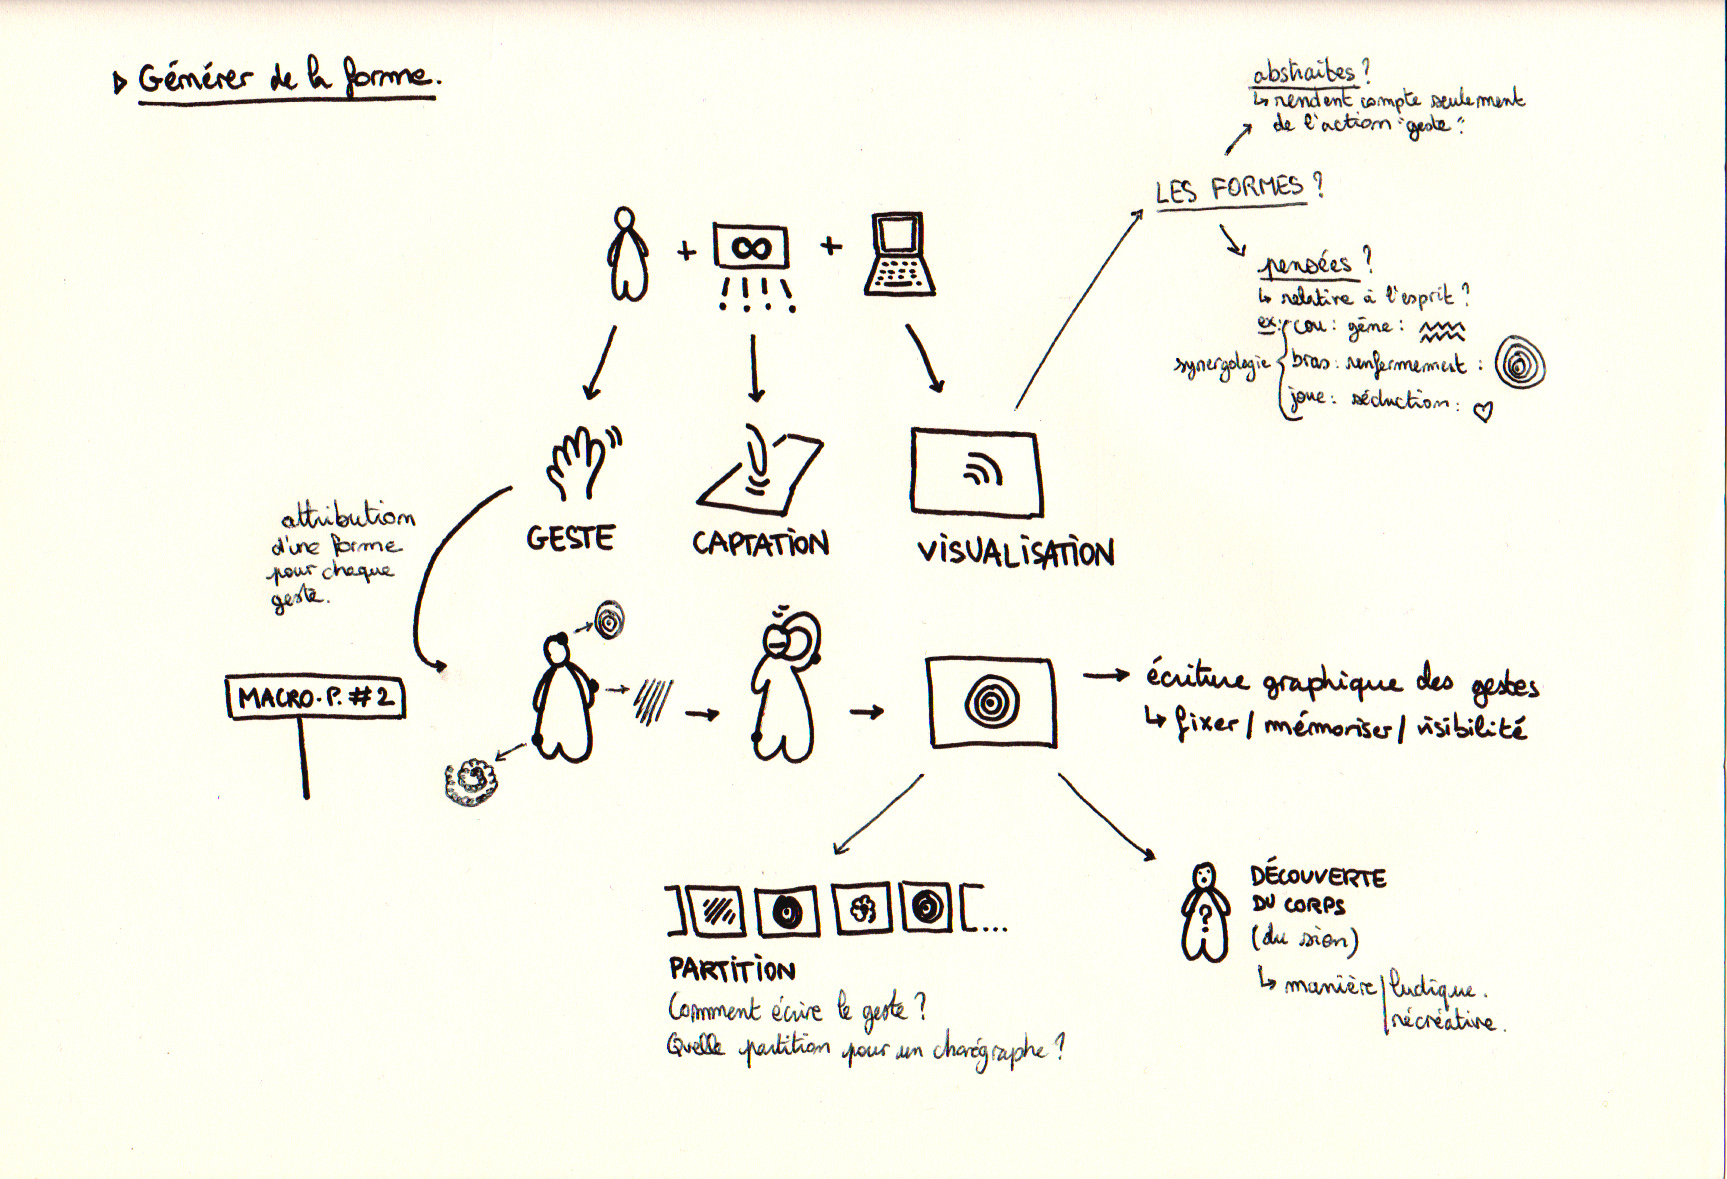 Générer de la forme.
abstraites ?
↳ rendent compte seulement
de l'action "geste".
LES FORMES ?
pensées ?
↳ relative à l'esprit ?
ex: cou : gêne :
synergologie bras : renfermement :
joue : séduction :
+ ∞ +
attribution
d'une forme
pour chaque
geste.
GESTE
CAPTATION
VISUALISATION
MACRO.P. #2
écriture graphique des gestes
↳ fixer / mémoriser / visibilité
PARTITION
Comment écrire le geste ?
Quelle partition pour un chorégraphe ?
?
DÉCOUVERTE
DU CORPS
(du sien)
↳ manière ludique.
récréative.